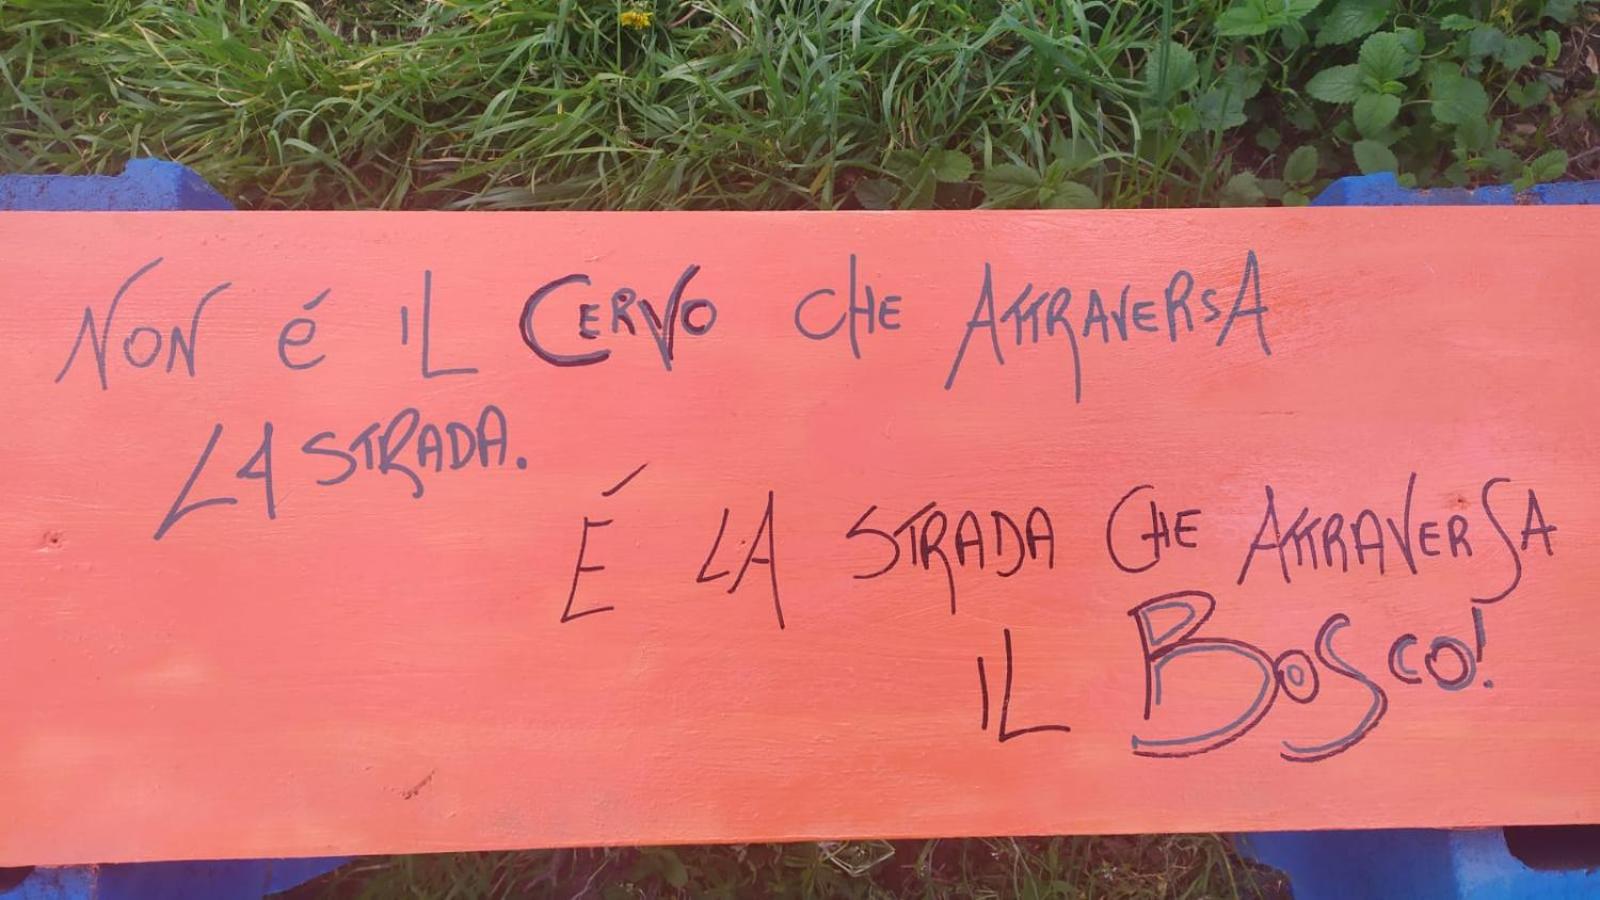 NON é IL CERVO CHE ATTRAVERSA
LA STRADA.
É LA STRADA CHE ATTRAVERSA
IL BOSCO!